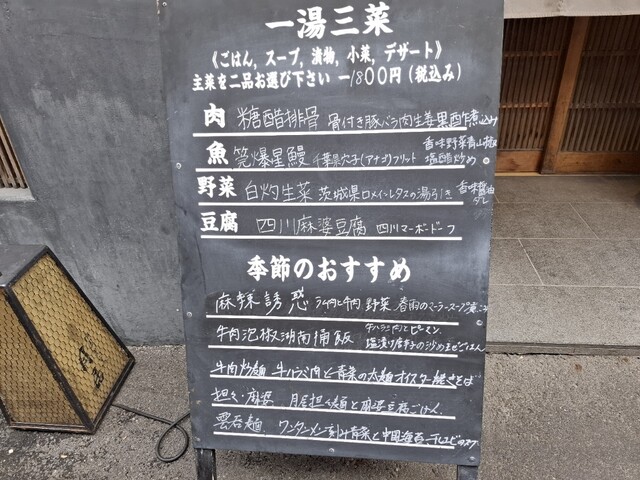 一湯三菜
《ごはん, スープ, 漬物, 小菜, デザート》
主菜を二品お選び下さい 一1800円(税込み)
肉 糖醋排骨 骨付き豚バラ肉生姜黒酢煮込み
魚 爆星鰻 千葉県穴子(アナゴ)フリット 香味野菜青山椒塩醋炒め
野菜 白灼生菜 茨城県ロメインレタスの湯引き 香味醤油ダレ
豆腐 四川麻婆豆腐 四川マーボードーフ
季節のおすすめ
麻辣誘惑 ラム肉と牛肉 野菜 春雨のマーラースープ煮こみ
牛肉泡椒湖南桶飯 牛ハラミ肉とピーマン 塩漬け唐辛子の炒めまぜごはん
牛肉炒麺 牛ハラミ肉と青菜の太麺オイスター焼きそば
担々・麻婆 担々麺と麻婆豆腐ごはん
雲呑麺 ワンターメン 刻み青菜と中国海苔